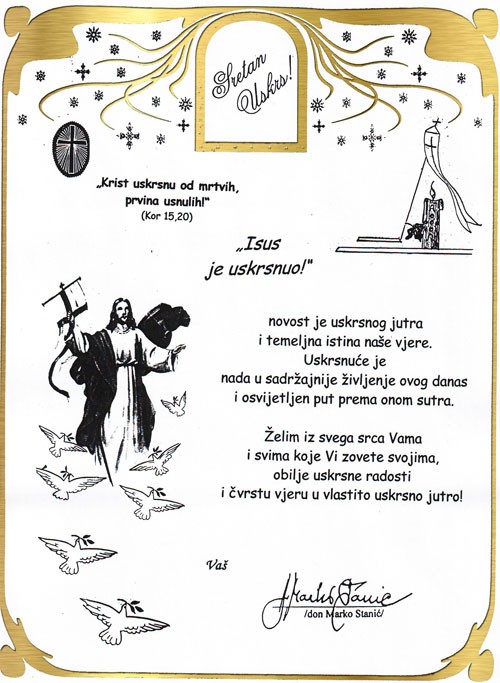 Sretan
Uskrs!
„Krist uskrsnu od mrtvih,
prvina usnulih!“
(Kor 15,20)
„Isus
je uskrsnuo!"
novost je uskrsnog jutra
i temeljna istina naše vjere.
Uskrsnuće je
nada u sadržajnije življenje ovog danas
i osvijetljen put prema onom sutra.
Želim iz svega srca Vama
i svima koje Vi zovete svojima,
obilje uskrsne radosti
i čvrstu vjeru u vlastito uskrsno jutro!
Vaš
Marko Stanić
/don Marko Stanić/